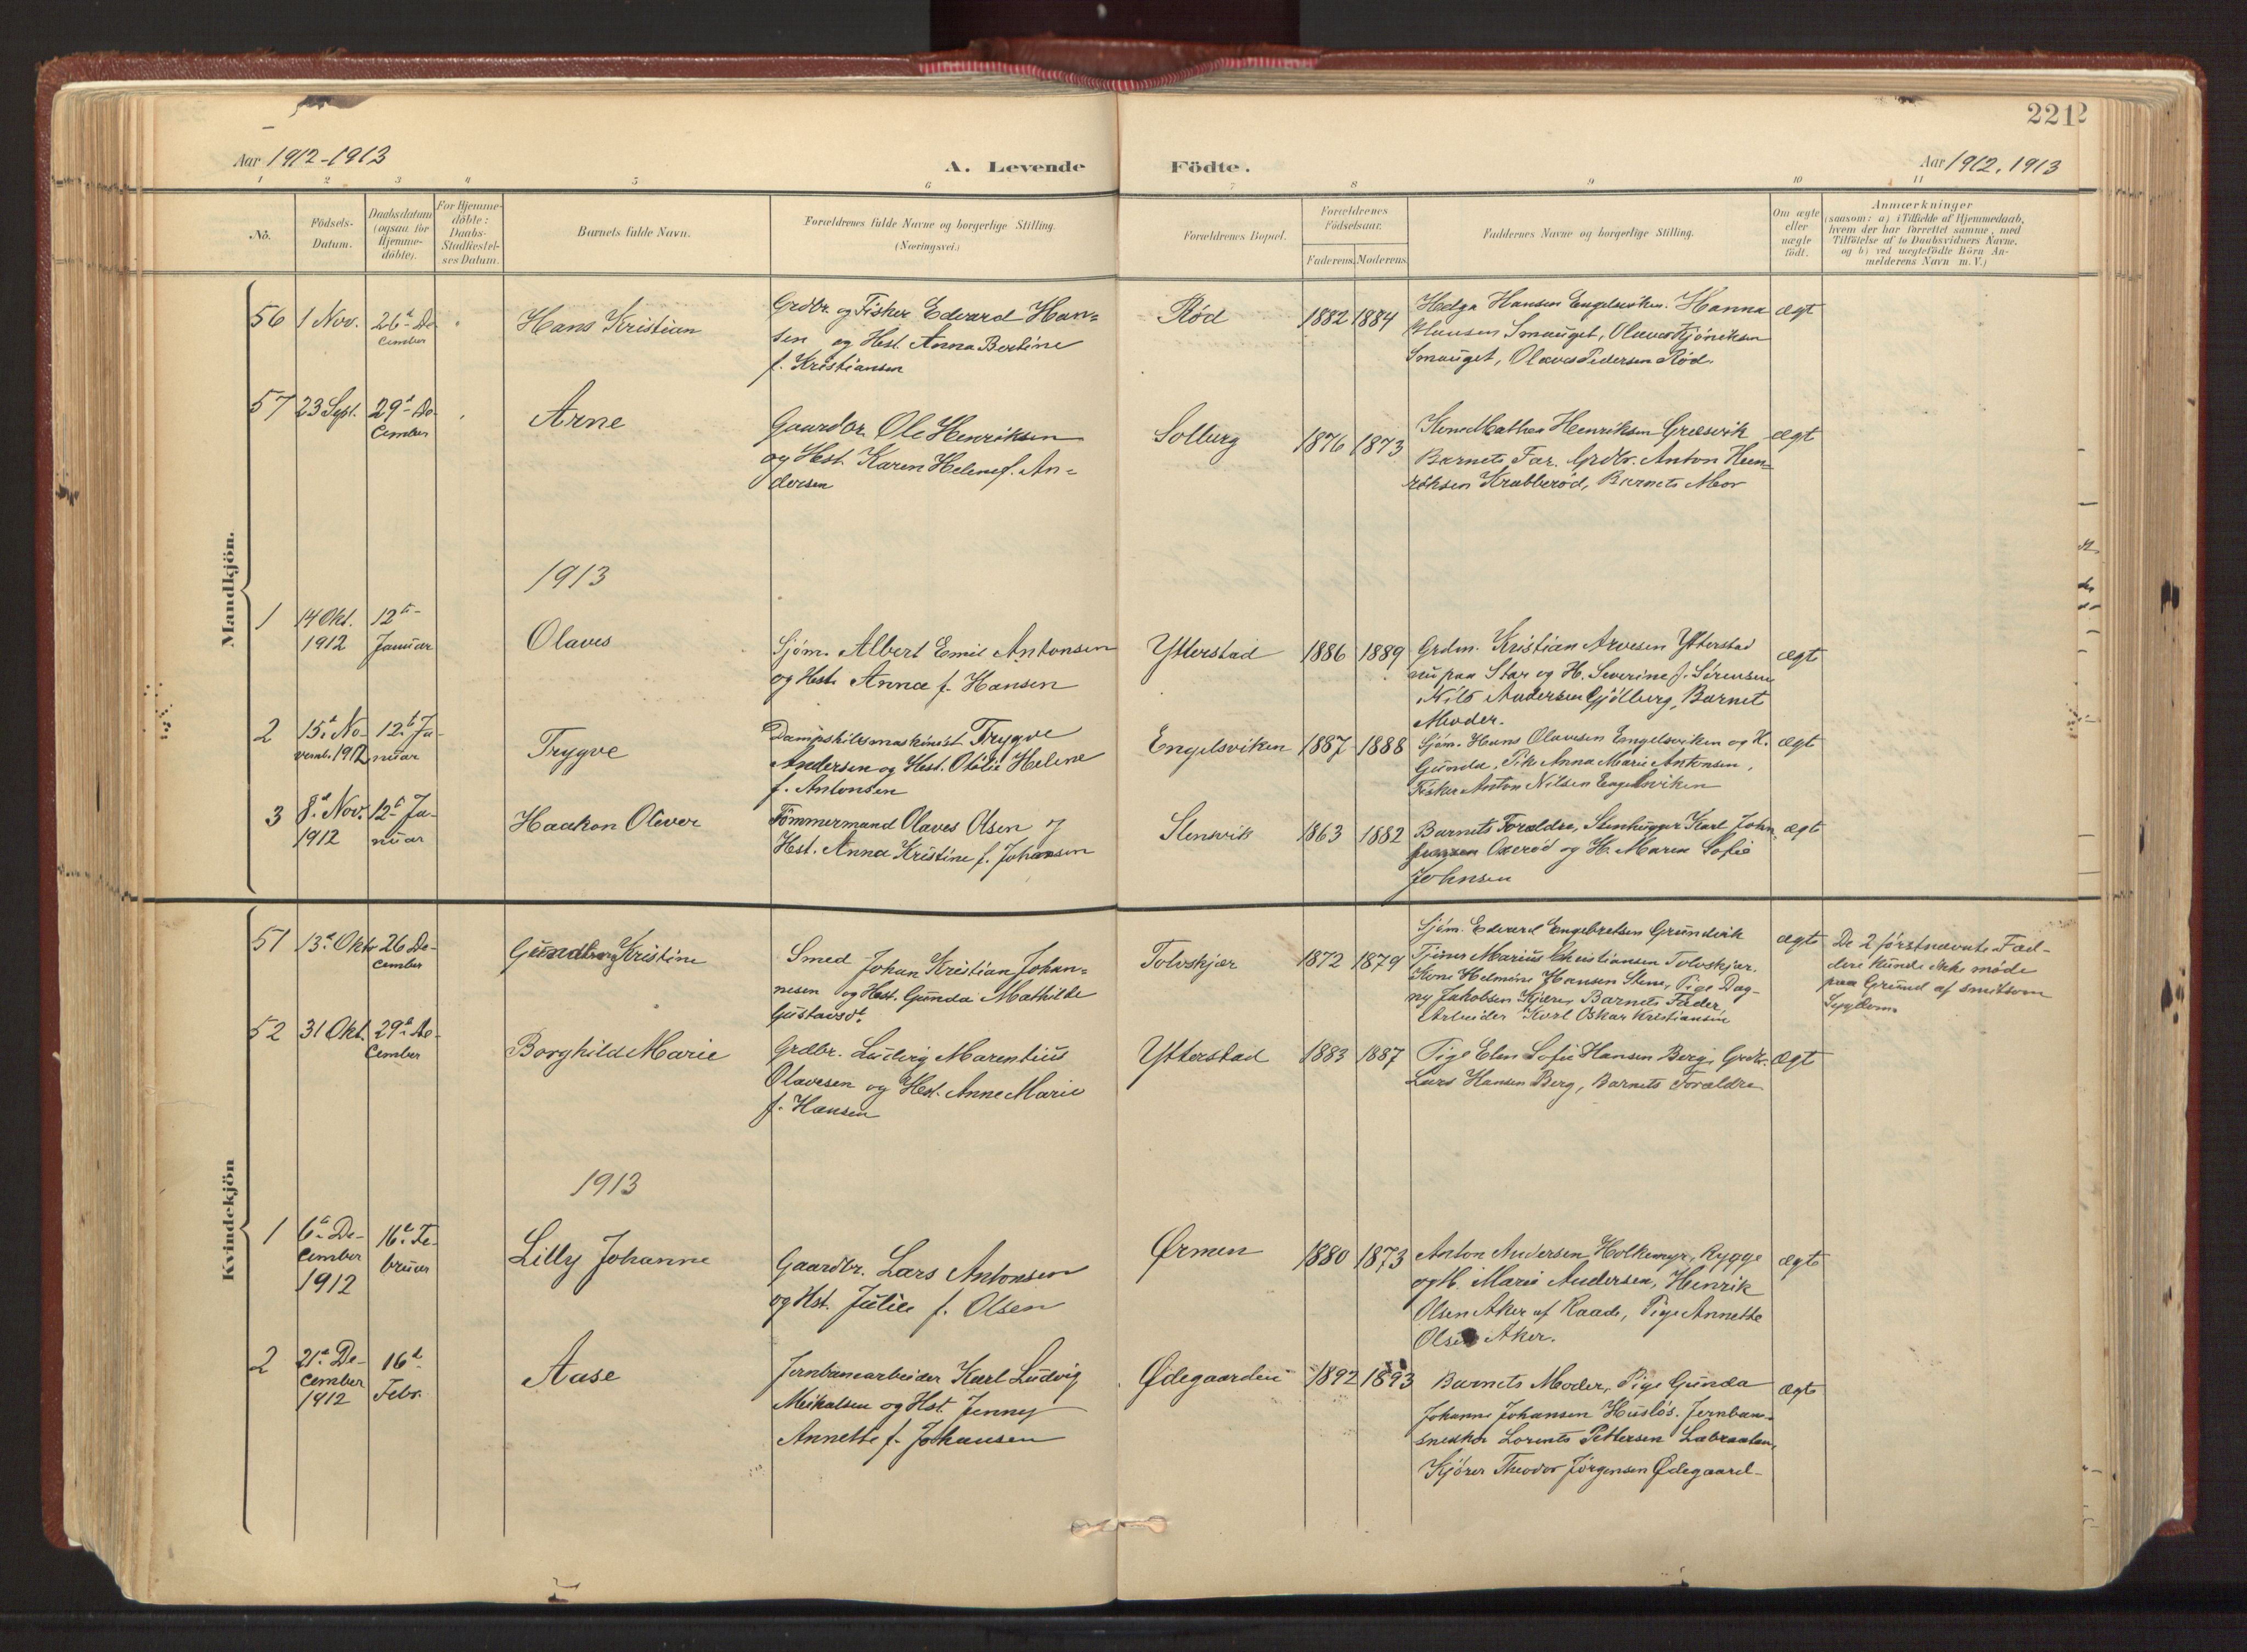 221
Aar 1912-1913
A. Levende Födte.
Aar 1912, 1913
1 2 3 4 5 6 7 8 9 10 11
No.
Födsels-
Datum.
Daabsdatum
(ogsaa for
Hjemme-
döbte).
For Hjemme-
döbte:
Daabs-
Stadfæstel-
ses Datum.
Barnets fulde Navn.
Forældrenes fulde Navne og borgerlige Stilling.
(Næringsvei.)
Forældrenes Bopæl.
Forældrenes
Födselsaar.
Faderens. Moderens.
Faddernes Navne og borgerlige Stilling.
Om ægte
eller
uægte
födt.
Anmærkninger
(saasom: a) i Tilfælde af Hjemmedaab,
hvem der har forrettet samme, med
Tilföielse af to Daabsvidners Navne,
og b) ved uægtefödte Börn An-
melderens Navn m. V.)
Mandkjön.
56 1 Nov. 26de De-
cember
Hans Kristian
Grdbr. og Fisker Edvard Han=
sen og Hst. Anna Bertine
f. Kristiansen
Rød
1882 1884
Helga Hansen Engelsviken. Hanna
Hansen Smauget, Olaves
Smauget, Olaves Pedersen Rød.
ægt
57 23 Sept. 29de De-
cember
Arne
Gaardbr. Ole Henriksen
og Hst. Karen Helene f. An=
dersen
Solberg
1876 1873
Kone Mathea Henriksen Græsvik
Barnets Far. Grdbr. Anton Hen=
riksen Krabberød, Barnets Mor
ægt
1913
1 14 Okt. 12te
1912 Januar
Olaves
Sjøm. Albert Emil Antonsen
og Hst. Anna f. Hansen
Ytterstad
1886 1889
Grdm. Kristian Arvesen Ytterstad
nu paa Star og H. Severine f. Sørensen
Nils Andersen Gjølberg, Barnet
Moder.
ægte
2 15de No- 12te Ja-
vemb. 1912 nuar
Trygve
Dampskibsmaskinist Trygve
Andersen og Hst. Otilie Helene
f. Antonsen
Engelsviken
1887 1888
Sjøm. Hans Olavesen Engelsviken og H.
Gunda, Pike Anna Marie Antonsen,
Fisker Anton Nilsen Engelsviken
ægt
3 8de Nov. 12te Ja-
1912 nuar
Haakon Oliver
Tømmermand Olaves Olsen og
Hst. Anna Kristine f. Johansen
Stensvik
1863 1882
Barnets Forældre, Stenhugger Karl John
Oxerød og H. Maren Sofie
Johnsen
ægte
Kvindekjön
51 13de Okt 26 De-
cember
Gundborg Kristine
Smed Johan Kristian Johan=
nesen og Hst. Gunda Mathilde
Gustavsdt.
Tolvskjær
1872 1879
Sjøm. Edvard Engebretsen Grundvik
Tjener Marius Christiansen Tolvskjær.
Kone Helmine Hansen Stene, Pige Dag-
ny Jakobsen Kjære, Barnets Fader,
Arbeider Karl Oskar Kristiansen
ægte
De 2 førstnævnte Fad-
dere kunde ikke møde
paa Grund af smitsom
Sygdom.
52 31 Okt. 29de De-
cember
Borghild Marie
Grdbr. Ludvig Marentius
Olavesen og Hst. Anne Marie
f. Hansen
Ytterstad
1883 1887
Pige Elen Sofie Hansen Berg, Grdbr.
Lars Hansen Berg, Barnets Forældre
Ægt
1913
1 6te De- 16de Fe-
cember bruar
1912
Lilly Johanne
Gaardbr. Lars Antonsen
og Hst. Julie f. Olsen
Ørmen
1880 1873
Anton Andersen Holkemyr, Rygge
og H. Marie Andersen, Henrik
Olsen Aker af Raade, Pige Annette
Olsen Aker.
ægte
2 21de De- 16de
cember Febr.
1912
Aase
Jernbanearbeider Karl Ludvig
Mikalsen og Hst. Jenny
Annette f. Johansen
Ødegaarden
1892 1893
Barnets Moder, Pige Gunda
Johanne Johansen Husløs. Jernbane-
snedker Lorents Pettersen Labraaten,
Kjører Theodor Jørgensen Ødegaard-
ægte